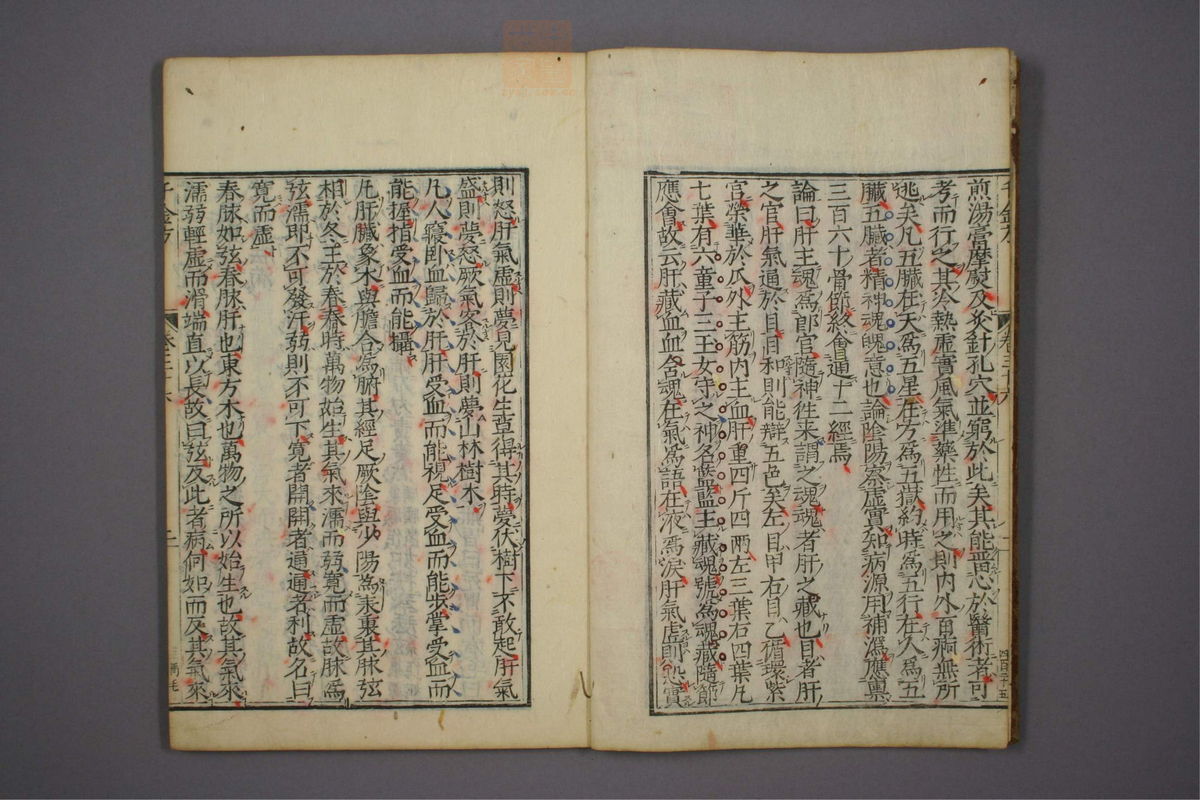 煎湯膏摩熨及灸針孔穴並窮於此矣其能悉於醫術者可
考而行之其冷熱虛實風氣準藥性而用之則内外百痾無所
逃矣凡五臟在天為五星在方為五嶽約時為五行在人為五
臟五臟者精神魂魄意也論陰陽察虛實知病源用補瀉應稟
三百六十骨節終會通十二經焉
論曰肝主魂為郎官隨神往来謂之魂魂者肝之藏也目者肝
之官肝氣通於目目和則能辯五色矣左目甲右目乙循環紫
宮榮華於爪外主筋内主血肝重四斤四兩左三葉右四葉凡
七葉有六童子三玉女守之神名藍藍主藏魂號為魂藏隨節
應會故云肝藏血血舍魂在氣為語在液為淚肝氣虛則恐實
則怒肝氣虛則夢見園花生草得其時夢伏樹下不敢起肝氣
盛則夢怒厥氣客於肝則夢山林樹木
凡人寢卧血歸於肝肝受血而能視足受血而能步掌受血而
能握指受血而能攝
凡肝臟象木與膽合為腑其經足厥陰與少陽為表裏其脉弦
相於冬王於春春時萬物始生其氣來濡而弱寛而虛故脉為
弦濡即不可發汗弱則不可下寛者開開者通通者利故名曰
寛而虛
春脉如弦春脉肝也東方木也萬物之所以始生也故其氣來
濡弱輕虛而滑端直以長故曰弦反此者病何如而反其氣來
千金方
二